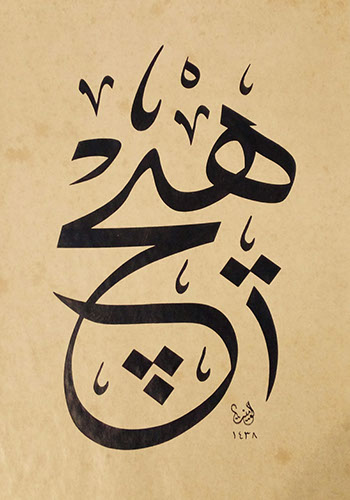 هيچ
١٤٣٨